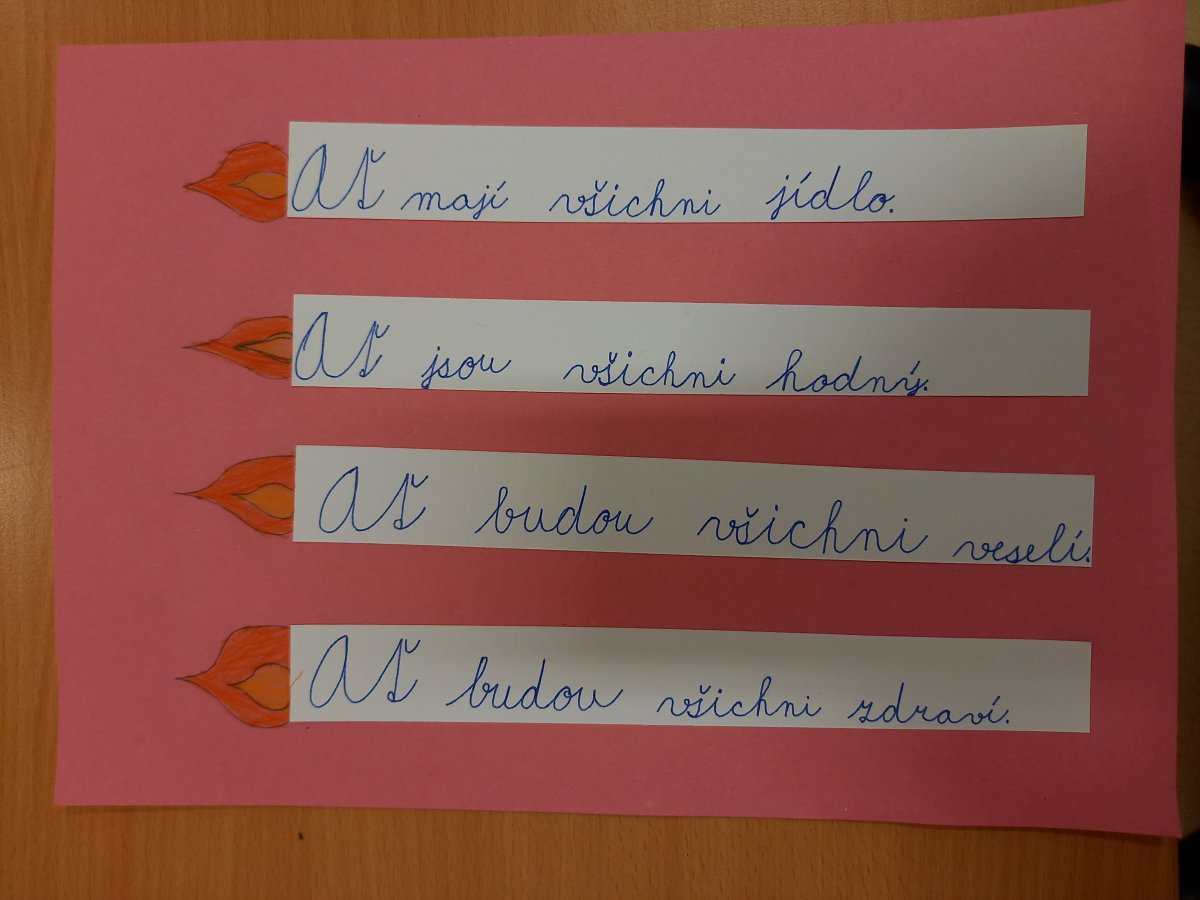 Ať mají všichni jídlo.
Ať jsou všichni hodný.
Ať budou všichni veselí.
Ať budou všichni zdraví.